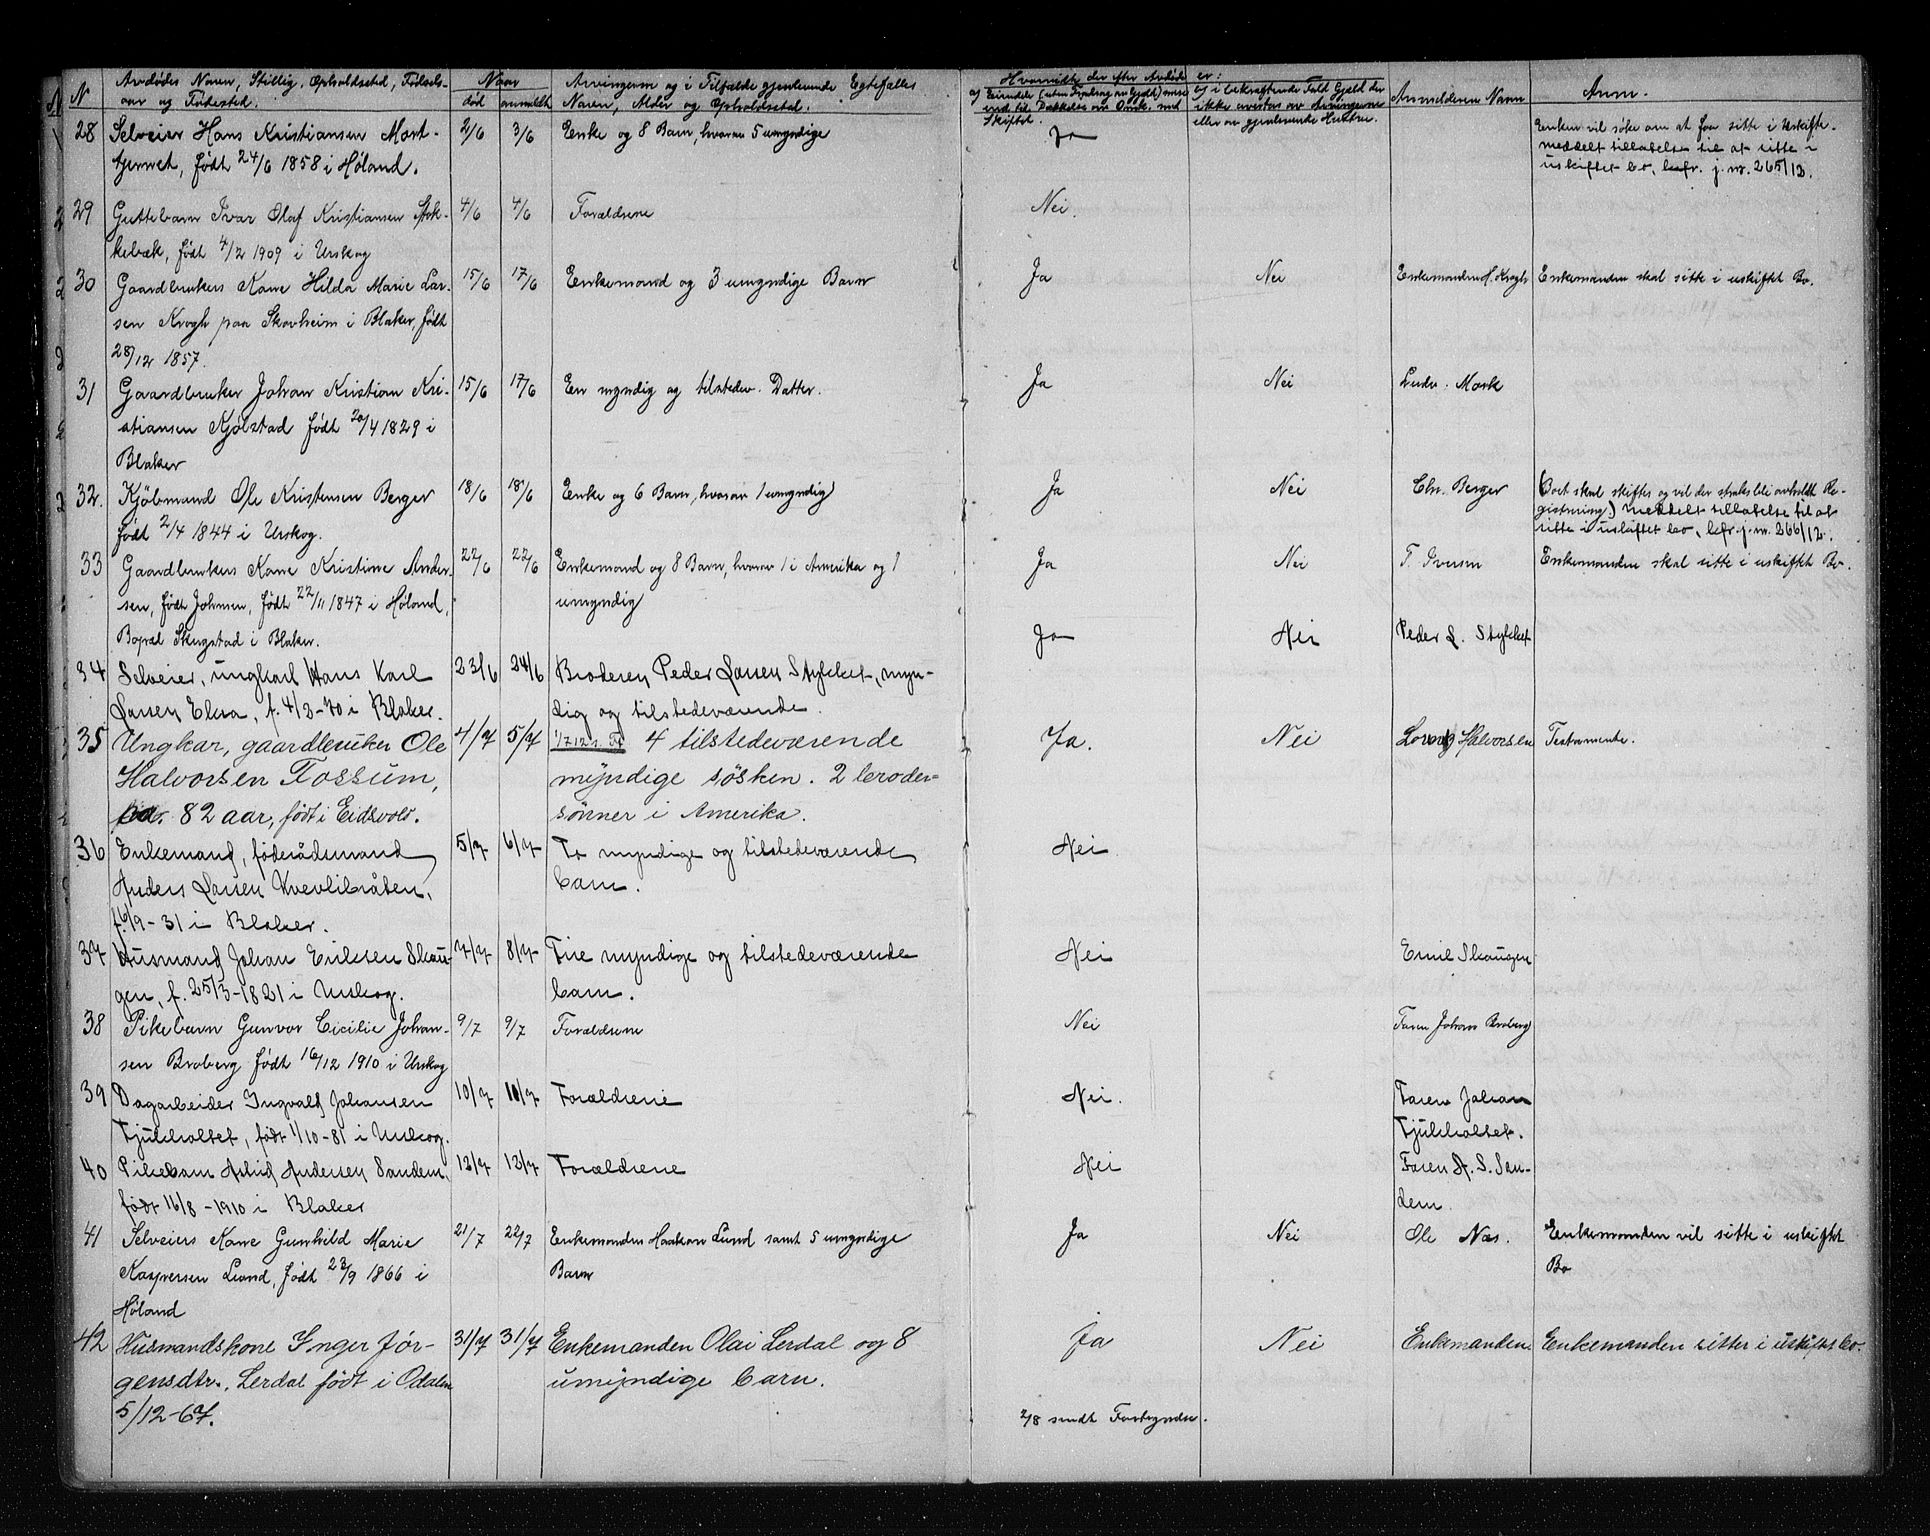 N
Avdødes Navn, Stillig, Opholdssted, Fødsels-
aar og Fødested.
Naar
død
anmeldt
Arvingerne og i Tilfælde gjenlevende Egtefælles
Navn, Alder og Opholdssted.
Hvorvidt der efter Avdøde er:
Skiftet.
b) i bekræftende Fald Gjeld der
ikke overtas av Arvingerne
eller av gjenlevende Hustru.
Anmelderens Navn
Anm.
28 Selveier Hans Kristiansen Mort-
tjernet, født 24/6 1858 i Høland.
2/6 3/6 Enke og 8 Barn, hvorav 5 umyndige
Ja
Enken vil søke om at faa sitte i Uskifte.
meddelt tillatelse til at sitte i
uskiftet bo, kfr. j.nr. 265/12.
29 Guttebarn Ivar Olaf Kristiansen Stok-
kebæk, født 4/2 1909 i Urskog
4/6 4/6 Forældrene
Nei.
30 Gaardbrukers Kone Hilda Marie Lar-
sen Krogh paa Skovheim i Blaker, født
28/12 1857.
15/6 17/6 Enkemand og 3 umyndige Barn
Ja Nei Enkemanden H. Krogh Enkemanden skal sitte i uskiftet Bo.
31 Gaardbruker Johan Kristian Kri-
stiansen Kjølstad født 20/4 1829 i
Blaker
15/6 17/6 En myndig og tilstedev. Datter.
Ja Nei Ludv. Mork
32. Kjøbmand Ole Kristensen Berger
født 2/4 1844 i Urskog.
18/6 18/6 Enke og 6 Barn, hvorav 1 umyndig
Ja Nei Chr. Berger (Boet skal skiftes og vil der straks bli avholdt Re-
gistrering.) Meddelt tillatelse til at
sitte i uskiftet bo, kfr. j.nr. 266/12.
33 Gaardbrukers Kone Kristine Ander-
sen, født Johnsen, født 22/11 1847 i Høland,
Bopæl Skugstad i Blaker.
22/6 22/6 Enkemand og 8 Barn, hvorav 1 i Amerika og 1
umyndig
Ja Nei T. Iversen Enkemanden skal sitte i uskiftet Bo.
34 Selveier, ungkarl Hans Karl
Larsen Eksa, f. 4/3-70 i Blaker.
23/6 24/6 Broderen Peder Larsen Stykket, myn-
dig og tilstedeværende.
Ja Nei Peder L. Stykket
35 Ungkar, gaardbruker Ole
Halvorsen Fossum,
82 aar, født i Eidsvold.
4/7 5/7 4 tilstedeværende
myndige søsken. 2 broder-
sønner i Amerika.
Ja. Nei Halvorsen Testamente.
36 Enkemand, føderådsmand
Anders Larsen Kvevlibråten,
f. 6/9-31 i Blaker.
5/7 6/7 To myndige og tilstedeværende
barn.
Nei
37 Husmand Johan Eriksen Skau-
gen, f. 25/3-1821 i Urskog.
7/7 8/7 Tre myndige og tilstedeværende
barn.
Nei Emil Skaugen
38 Pikebarn Gunvor Cicilie Johan-
sen Broberg født 16/12 1910 i Urskog
9/7 9/7 Forældrene
Nei Faren Johan Broberg
39 Dagarbeider Ingvald Johansen
Tjukholtet, født 1/10-81 i Urskog.
10/7 10/7 Forældrene
Nei. Faren Johan
Tjukholtet.
40 Pikebarn Astrid Andersen Sandem,
født 16/8-1910 i Blaker
12/7 12/7 Forældrene
Nei Faren A. S. San-
dem.
41 Selveiers Kone Gunhild Marie
Kaspersen Lund, født 23/9 1866 i
Høland
21/7 22/7 Enkemanden Haakon Lund samt 5 umyndige
Barn
Ja Nei Ole Næs. Enkemanden vil sitte i uskiftet
Bo
42 Husmandskone Inger Jør-
gensdtr. Lerdal født i Odalen
5/12-67.
31/7 31/7 Enkemanden Olai Lerdal og 8
umyndige barn.
Ja Nei Enkemanden Enkemanden sitter i uskiftet bo.
2/8 sendt Fortegnelse.